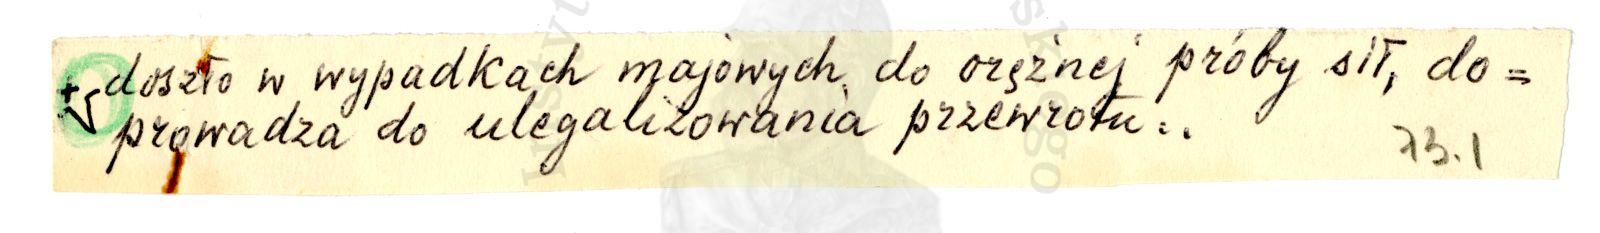 + √ doszło w wypadkach majowych, do orężnej próby sił, do=
prowadza do ulegalizowania przewrotu..
73.1